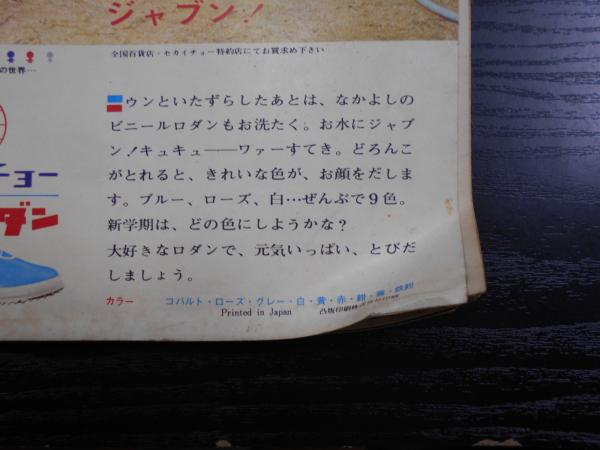 ジャブン!
全国百貨店・セカイチョー特約店にてお買求め下さい
の世界…
ウンといたずらしたあとは、なかよしの
ビニールロダンもお洗たく。お水にジャブ
ン!キュキュ――ワァーすてき。どろんこ
がとれると、きれいな色が、お顔をだしま
す。ブルー、ローズ、白…ぜんぶで9色。
新学期は、どの色にしようかな?
大好きなロダンで、元気いっぱい、とびだ
しましょう。
チョー
ダン
カラー コバルト・ローズ・グレー・白・黄・赤・紺・藤・鉄紺
Printed in Japan 凸版印刷株式会社印刷